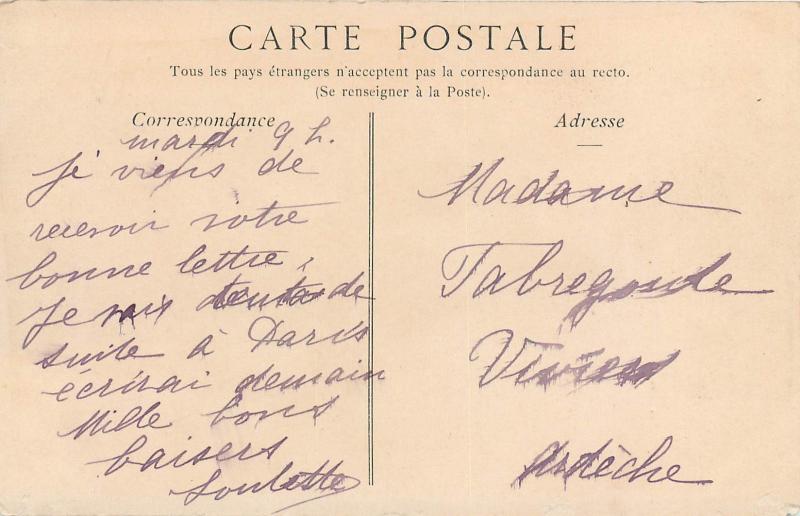 CARTE POSTALE
Tous les pays étrangers n'acceptent pas la correspondance au recto.
(Se renseigner à la Poste).
Correspondance
mardi 9 h.
Je viens de
recevoir votre
bonne lettre,
Je vais de
suite à Paris
écrirai demain
Mille bons
baisers
Adresse
Madame
Viviers
Ardèche